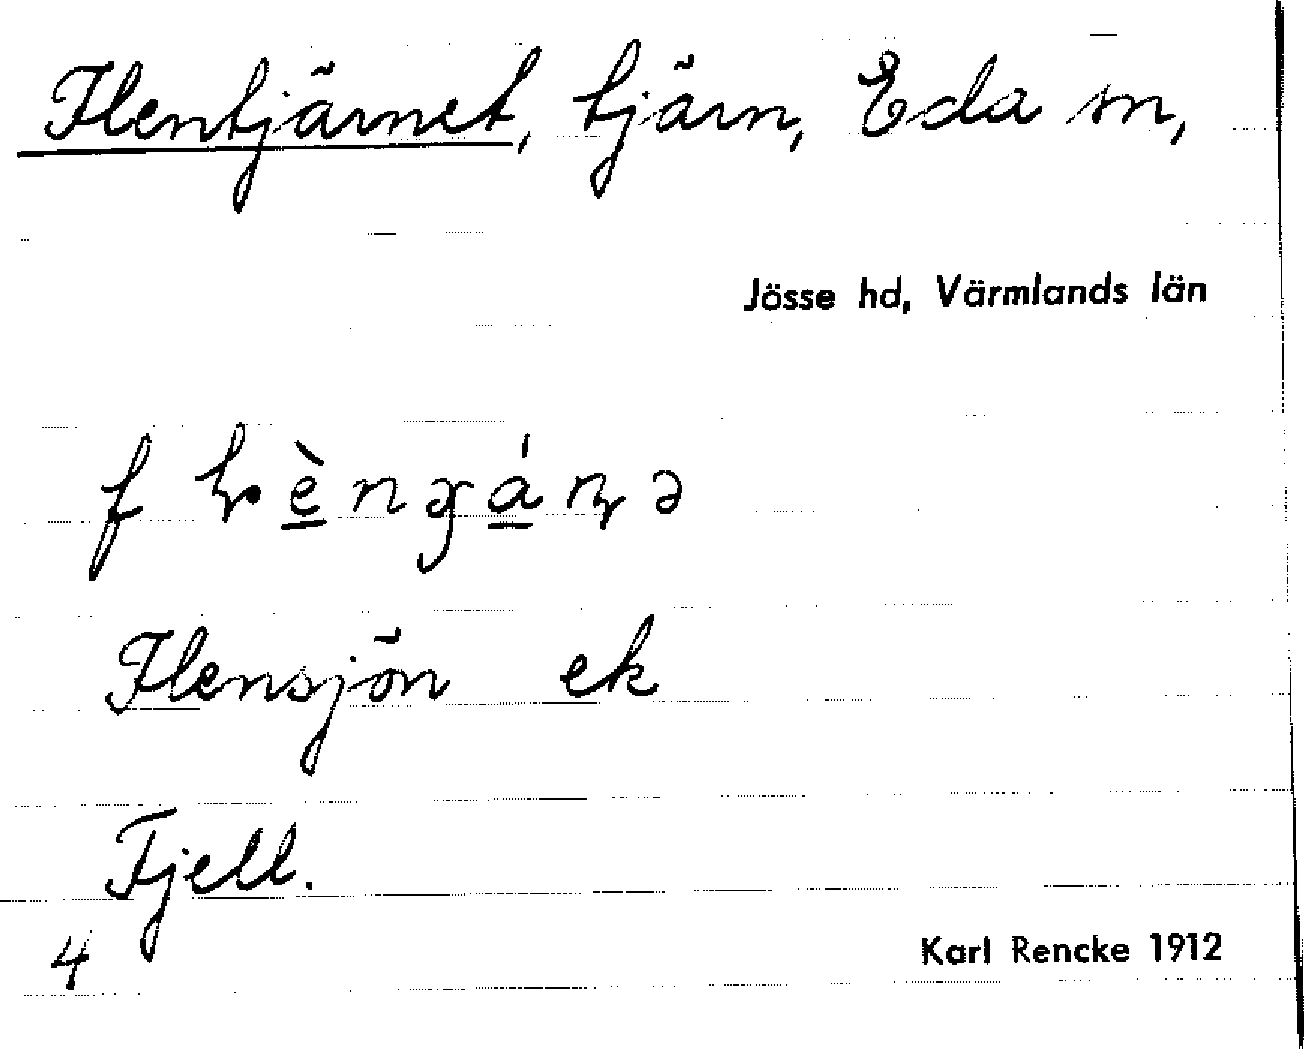 Flentjärnet, tjärn, Eda sn,
Jösse hd, Värmlands län
Flensjön ek
Fjell.
4
Karl Rencke 1912